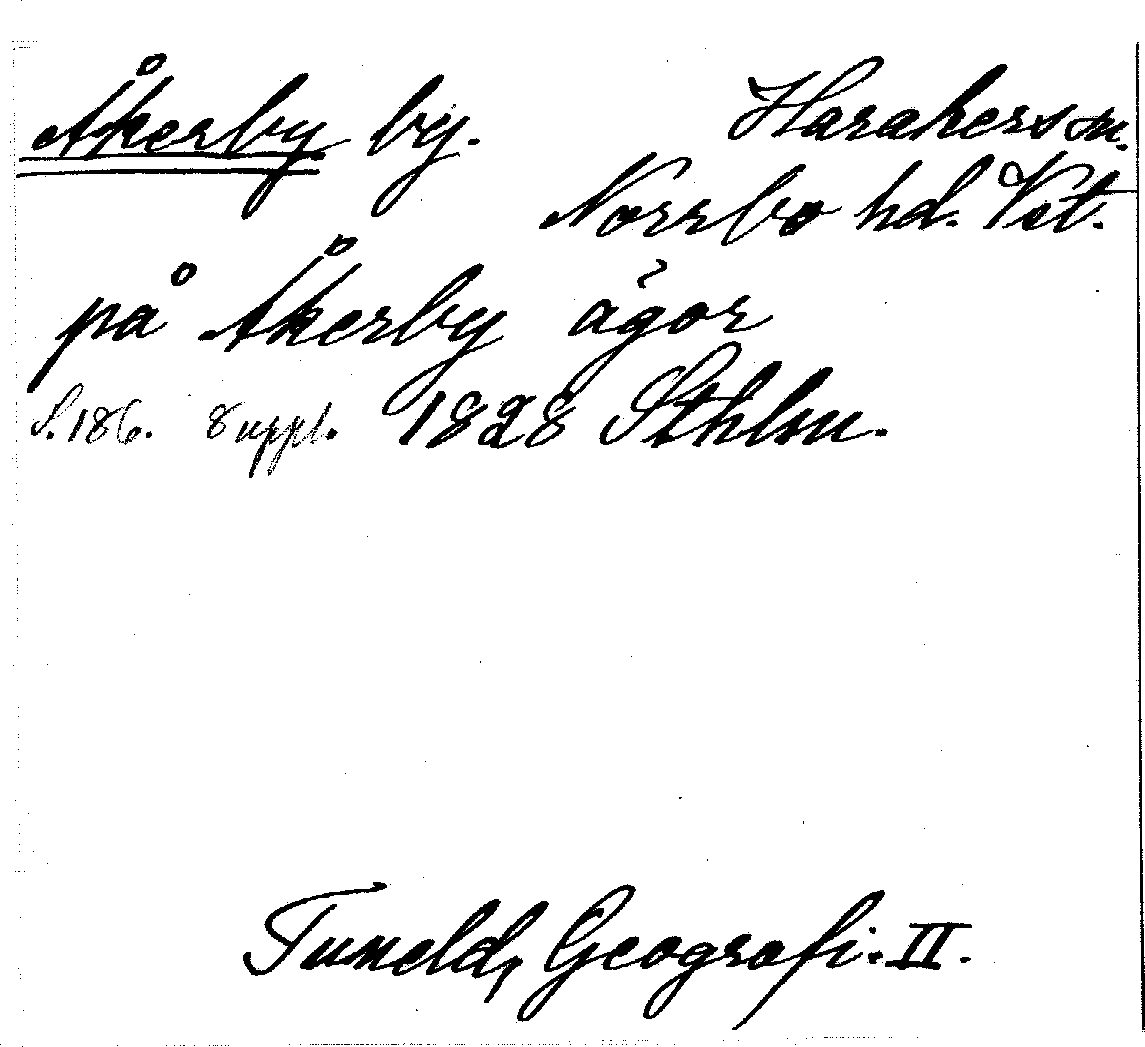 Åkerby by. Harakers sn.
Norrbo hd. Vstl.
på Åkerby ägor
S. 186. 8 uppl. 1828 Sthlm.
Tuneld, Geografi. II.